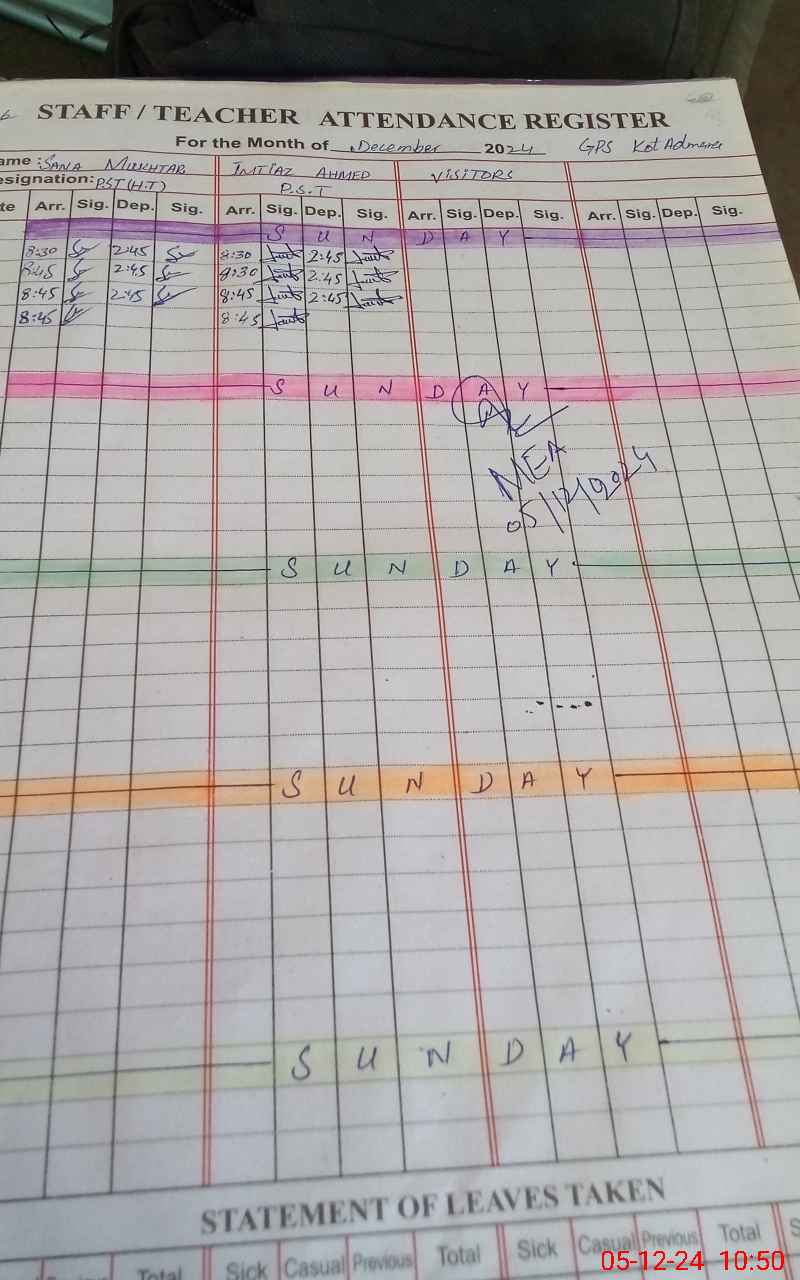 STAFF / TEACHER ATTENDANCE REGISTER
For the Month of December 2024 GPS Kot
ame : SANA MUKHTAR IMTIAZ AHMED VISITORS
esignation: PST (H.T) P.S.T
te Arr. Sig. Dep. Sig. Arr. Sig. Dep. Sig. Arr. Sig. Dep. Sig. Arr. Sig. Dep. Sig.
S U N D A Y
8:30 2:45 8:30 2:45
8:45 2:45 9:30 2:45
8:45 2:45 8:45 2:45
8:45 8:45
S U N D A Y
MEA
05/12/2024
S U N D A Y
S U N D A Y
S U N D A Y
STATEMENT OF LEAVES TAKEN
Previous Total Sick Casual Previous Total Sick Casual Previous Total S
05-12-24 10:50